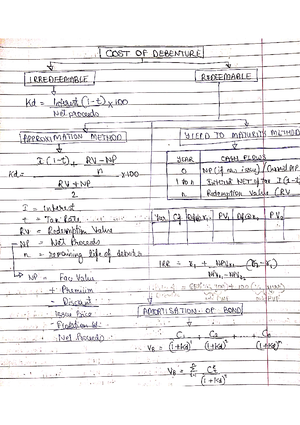 COST OF DEBENTURE
IRREDEEMABLE
REDEEMABLE
Kd = Interest (1-t) x100
Net proceeds
APPROXIMATION METHOD
YIELD TO MATURITY METHOD
Kd = I(1-t) + RV-NP
n
x100
RV+NP
2
YEAR CASH FLOWS
0 NP (if new issue) / Current MP
1 to n Interest NET of Tax I(1-t)
n Redemption Value (RV
I = Interest
t = Tax Rate
RV = Redemption Value
NP = Net Proceeds
n = remaining life of
Year Cf PV1 PV2
IRR = r1 + NPVr1 (r2 - r1)
NPVr1 - NPVr2
NP = Face Value
+ Premium
- Discount
Issue Price
- Floatation
Net Proceeds
AMORTISATION OF BOND
VB = C1 + C2 + ... + Cn
(1+kd)¹ (1+kd)² (1+kd)ⁿ
VB = Σ
(1+kd)